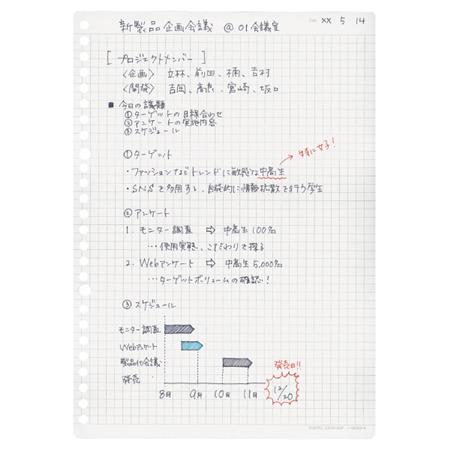 新製品企画会議 @ 01会議室
XX 5 14
[プロジェクトメンバー]
〈企画〉 立林、前田、楠、吉村
〈開発〉 吉岡、高濱、宮崎、坂口
■ 今日の議題
①ターゲットの目線合わせ
②アンケートの実施内容
③スケジュール
特に女子!
①ターゲット
・ファッションなどトレンドに敏感な中高生
・SNSを多用する、自発的に情報拡散を行う学生
②アンケート
1. モニター調査 ⇨ 中高生 100名
…使用実態、こだわりを探る
2. Webアンケート ⇨ 中高生 5,000名
…ターゲットボリュームの確認!
③スケジュール
モニター調査
Webアンケート
製品化会議
発売
発売日!!
8月 9月 10月 11月
12/20